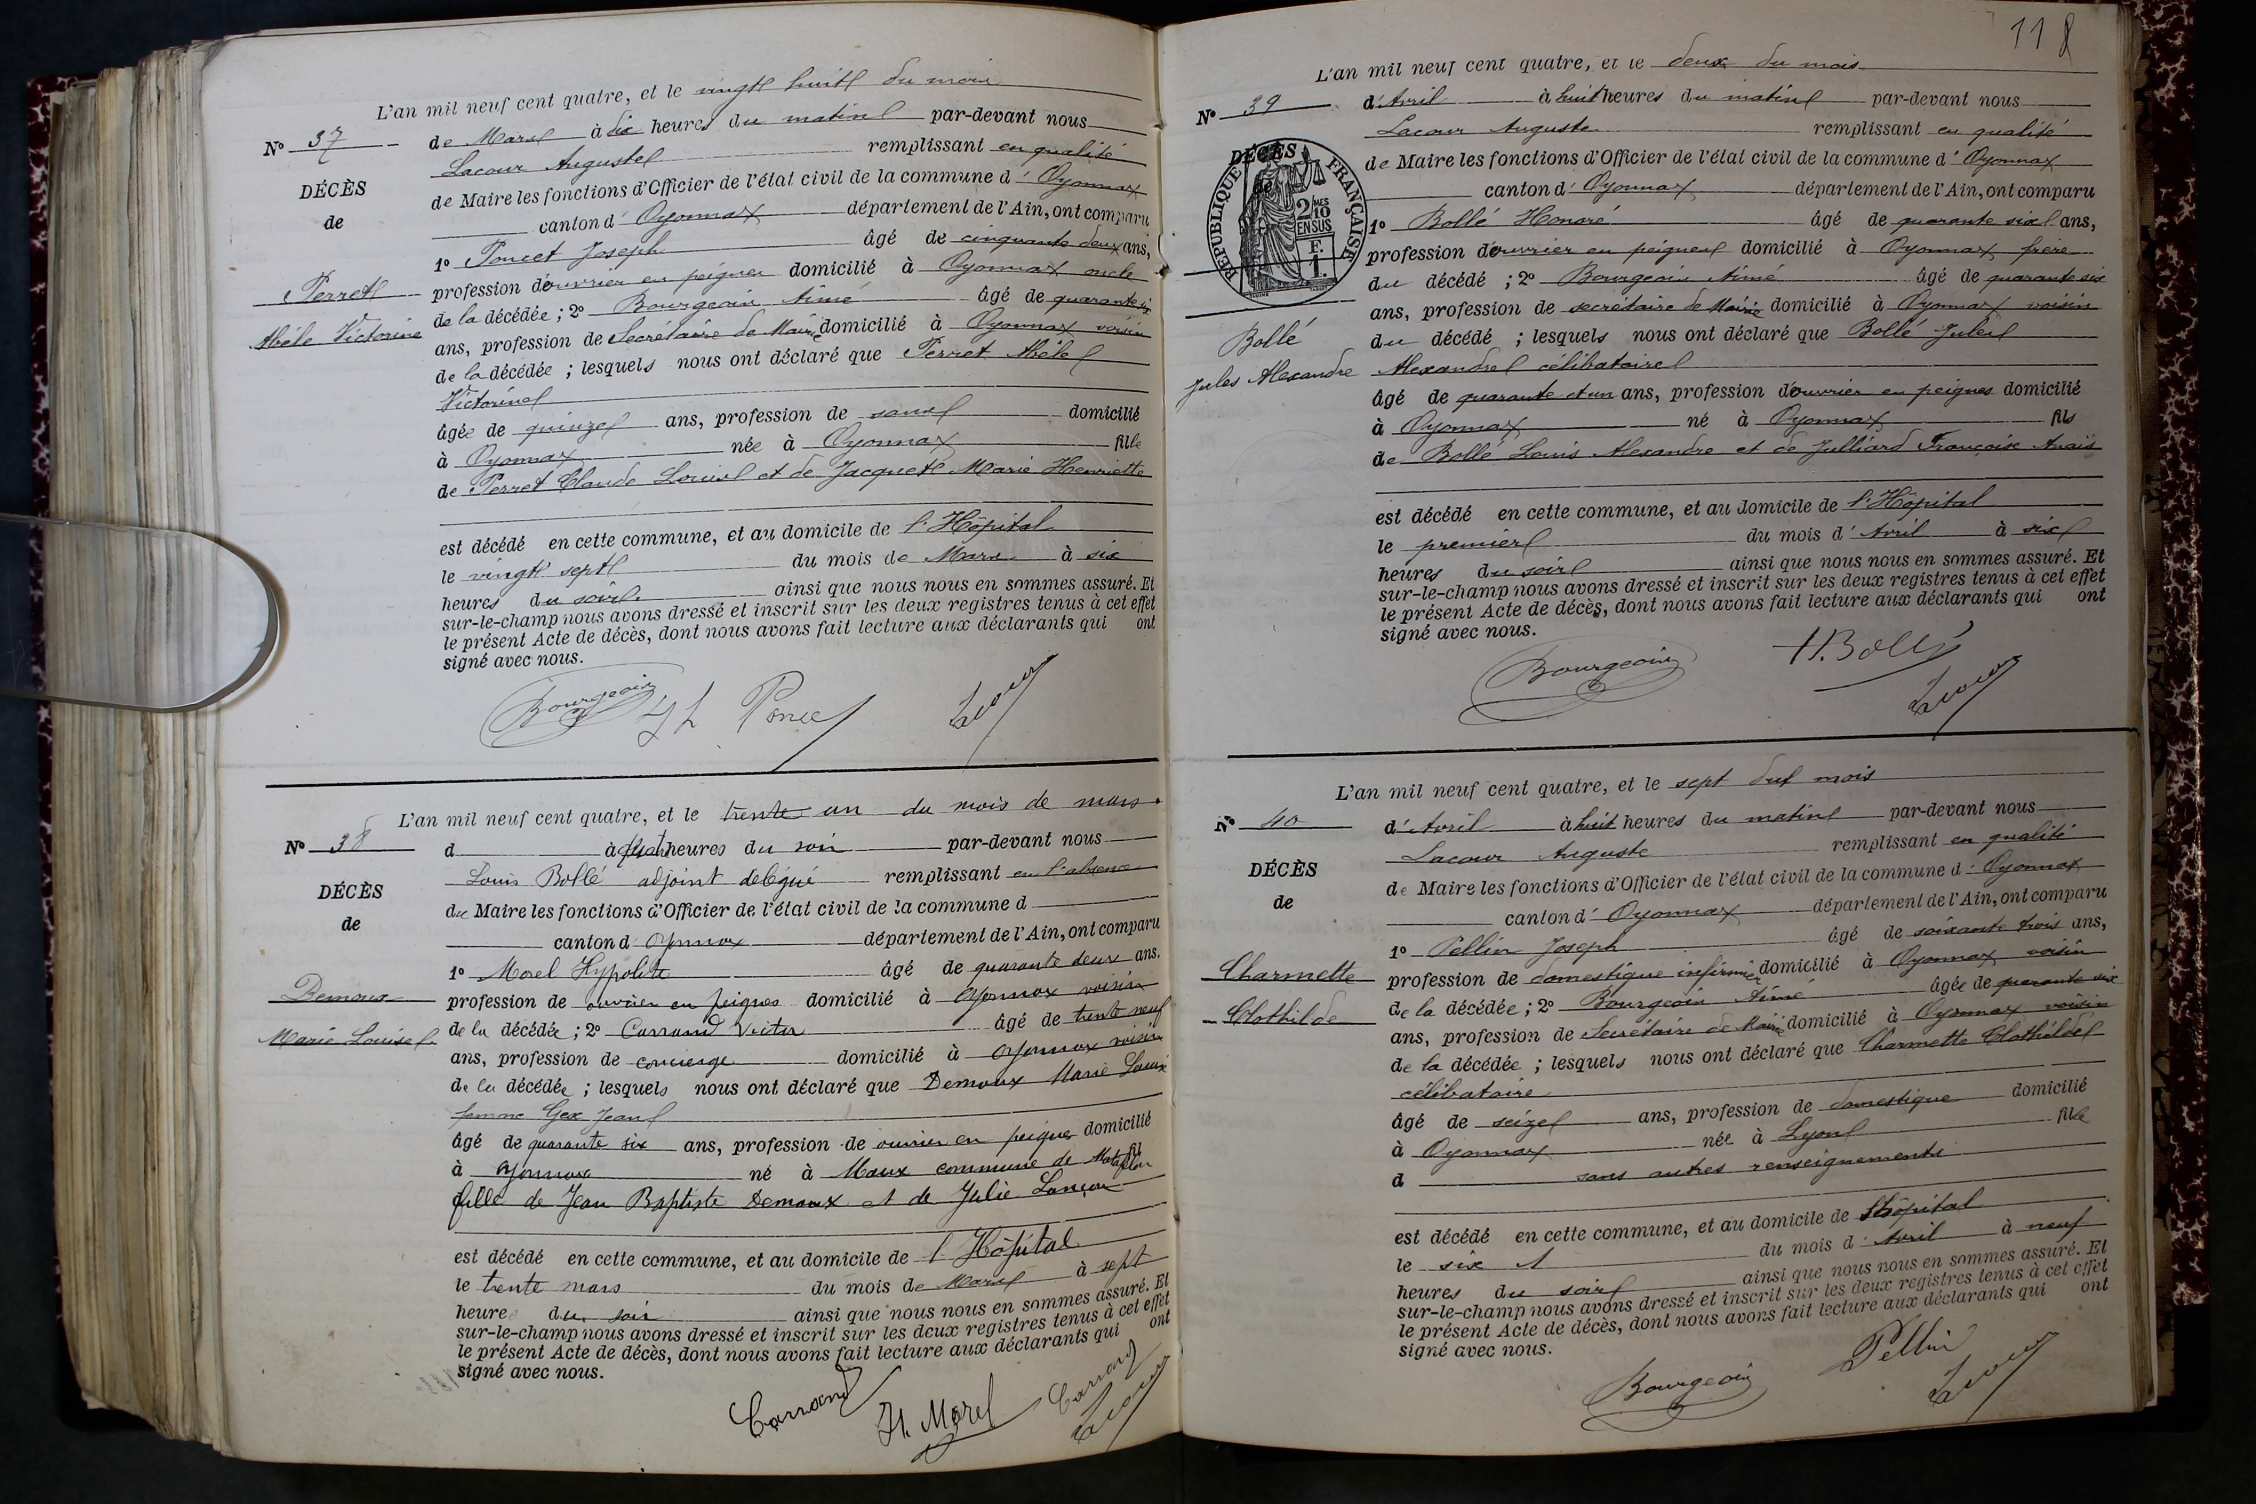 L'an mil neuf cent quatre, et le vingt huit du mois
N° 37
de Mars à dix heures du matin par-devant nous
Lacour Auguste remplissant en qualité
DÉCÈS
de Maire les fonctions d'Officier de l'état civil de la commune d'Oyonnax
de
canton d'Oyonnax département de l'Ain, ont comparu
1° Poncet Joseph âgé de cinquante deux ans,
Perret
profession d'ouvrier en peignes domicilié à Oyonnax oncle
de la décédée ; 2° Bourgeois Aimé âgé de quarante six
Abèle Victorine
ans, profession de Secrétaire de Mairie domicilié à Oyonnax voisin
de la décédée ; lesquels nous ont déclaré que Perret Abèle
Victorine
âgée de quinze ans, profession de sans domicilié
à Oyonnax née à Oyonnax fille
de Perret Claude Louis et de Jacquet Marie Henriette
est décédé en cette commune, et au domicile de l'Hôpital
le vingt sept du mois de Mars à six
heures du soir ainsi que nous nous en sommes assuré. Et
sur-le-champ nous avons dressé et inscrit sur les deux registres tenus à cet effet
le présent Acte de décès, dont nous avons fait lecture aux déclarants qui ont
signé avec nous.
Bourgeois Poncet Lacour
L'an mil neuf cent quatre, et le trente un du mois de mars
N° 38
d à quatre heures du soir par-devant nous
Louis Bollé adjoint délégué remplissant en l'absence
DÉCÈS
du Maire les fonctions d'Officier de l'état civil de la commune d
de
canton d'Oyonnax département de l'Ain, ont comparu
1° Morel Hypolite âgé de quarante deux ans.
Demoux
profession de ouvrier en peignes domicilié à Oyonnax voisin
de la décédée ; 2° Carrand Victor âgé de trente neuf
Marie Louise
ans, profession de concierge domicilié à Oyonnax voisin
de la décédée ; lesquels nous ont déclaré que Demoux Marie Louise
femme Gex Jean
âgé de quarante six ans, profession de ouvrier en peignes domicilié
à Oyonnax né à Maux commune de Matafelon fil
fille de Jean Baptiste Demoux et de Julie Lançon
est décédé en cette commune, et au domicile de l'Hôpital
le trente mars du mois de Mars à sept
heures du soir ainsi que nous nous en sommes assuré. Et
sur-le-champ nous avons dressé et inscrit sur les deux registres tenus à cet effet
le présent Acte de décès, dont nous avons fait lecture aux déclarants qui ont
signé avec nous.
Carrand H. Morel Carrand Lacour
118
L'an mil neuf cent quatre, et le deux du mois
N° 39
d'Avril à huit heures du matin par-devant nous
Lacour Auguste remplissant en qualité
DÉCÈS
de
RÉPUBLIQUE FRANÇAISE
2/10 MES
EN SUS
F.
1.
de Maire les fonctions d'Officier de l'état civil de la commune d'Oyonnax
canton d'Oyonnax département de l'Ain, ont comparu
1° Bollé Honoré âgé de quarante six ans,
profession d'ouvrier en peignes domicilié à Oyonnax frère
du décédé ; 2° Bourgeois Aimé âgé de quarante six
ans, profession de secrétaire de Mairie domicilié à Oyonnax voisin
Bollé
du décédé ; lesquels nous ont déclaré que Bollé Jules
Jules Alexandre
Alexandre célibataire
âgé de quarante et un ans, profession d'ouvrier en peignes domicilié
à Oyonnax né à Oyonnax fils
de Bollé Louis Alexandre et de Julliard Françoise Anaïs
est décédé en cette commune, et au domicile de l'Hôpital
le premier du mois d'Avril à six
heures du soir ainsi que nous nous en sommes assuré. Et
sur-le-champ nous avons dressé et inscrit sur les deux registres tenus à cet effet
le présent Acte de décès, dont nous avons fait lecture aux déclarants qui ont
signé avec nous.
Bourgeois H. Bollé Lacour
L'an mil neuf cent quatre, et le sept du mois
N° 40
d'Avril à huit heures du matin par-devant nous
Lacour Auguste remplissant en qualité
DÉCÈS
de Maire les fonctions d'Officier de l'état civil de la commune d'Oyonnax
de
canton d'Oyonnax département de l'Ain, ont comparu
1° Pellin Joseph âgé de soixante trois ans,
Charmette
profession de domestique infirmier domicilié à Oyonnax voisin
de la décédée ; 2° Bourgeois Aimé âgée de quarante six
Clothilde
ans, profession de Secrétaire de Mairie domicilié à Oyonnax voisin
de la décédée ; lesquels nous ont déclaré que Charmette Clothilde
célibataire
âgé de seize ans, profession de domestique domicilié
à Oyonnax née à Lyon fille
d sans autres renseignements
est décédé en cette commune, et au domicile de l'hôpital
le six du mois d'Avril à neuf
heures du soir ainsi que nous nous en sommes assuré. Et
sur-le-champ nous avons dressé et inscrit sur les deux registres tenus à cet effet
le présent Acte de décès, dont nous avons fait lecture aux déclarants qui ont
signé avec nous.
Bourgeois Pellin Lacour